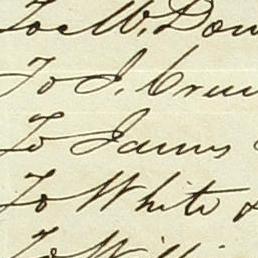 To W. Dow
To J. Crum
To James
To White &
To Willi